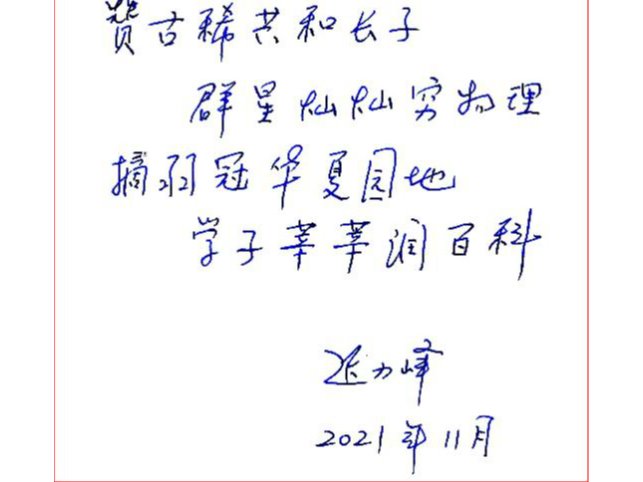 赞古稀共和长子
群星灿灿穷物理
摘弱冠华夏园地
学子莘莘润百科
力峰
2021年11月